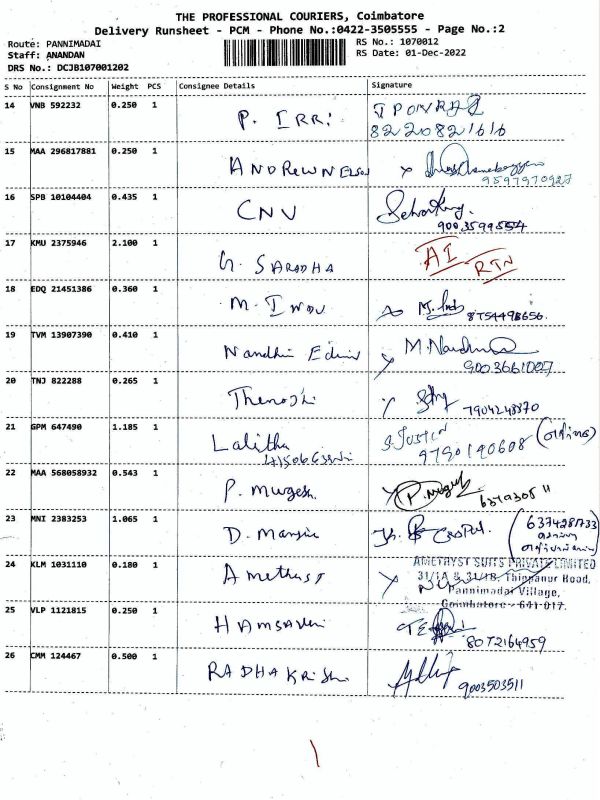 THE PROFESSIONAL COURIERS, Coimbatore
Delivery Runsheet - PCM - Phone No.:0422-3505555 - Page No.:2
Route: PANNIMADAI
RS No.: 1070012
Staff: ANANDAN
RS Date: 01-Dec-2022
DRS No.: DCJB107001202
S No Consignment No Weight PCS Consignee Details Signature
14 VNB 592232 0.250 1 P. IRR!
8220821616
15 MAA 296817881 0.250 1 ANDREWNELSON
9597970927
16 SPB 10104404 0.435 1 CNV
9003599554
17 KMU 2375946 2.100 1 G. SARADHA AI
RTN
18 EDQ 21451386 0.360 1 M. INDU
8754498656.
19 TVM 13907390 0.410 1 Nandhini
9003661007
20 TNJ 822288 0.265 1
7904248870
21 GPM 647490 1.185 1 Lalitha
9790190608
22 MAA 568058932 0.543 1 P. Murgesh P. Murgesh
23 MNI 2383253 1.065 1 D.
24 KLM 1031110 0.180 1 Amethyst
AMETHYST SUITS PRIVATE LIMITED
31/1A & 31/1B, Thippanur Road,
Pannimadai Village,
Coimbatore - 641 017.
25 VLP 1121815 0.250 1
8072164959
26 CMM 124467 0.500 1 RADHAKrish
9003503511